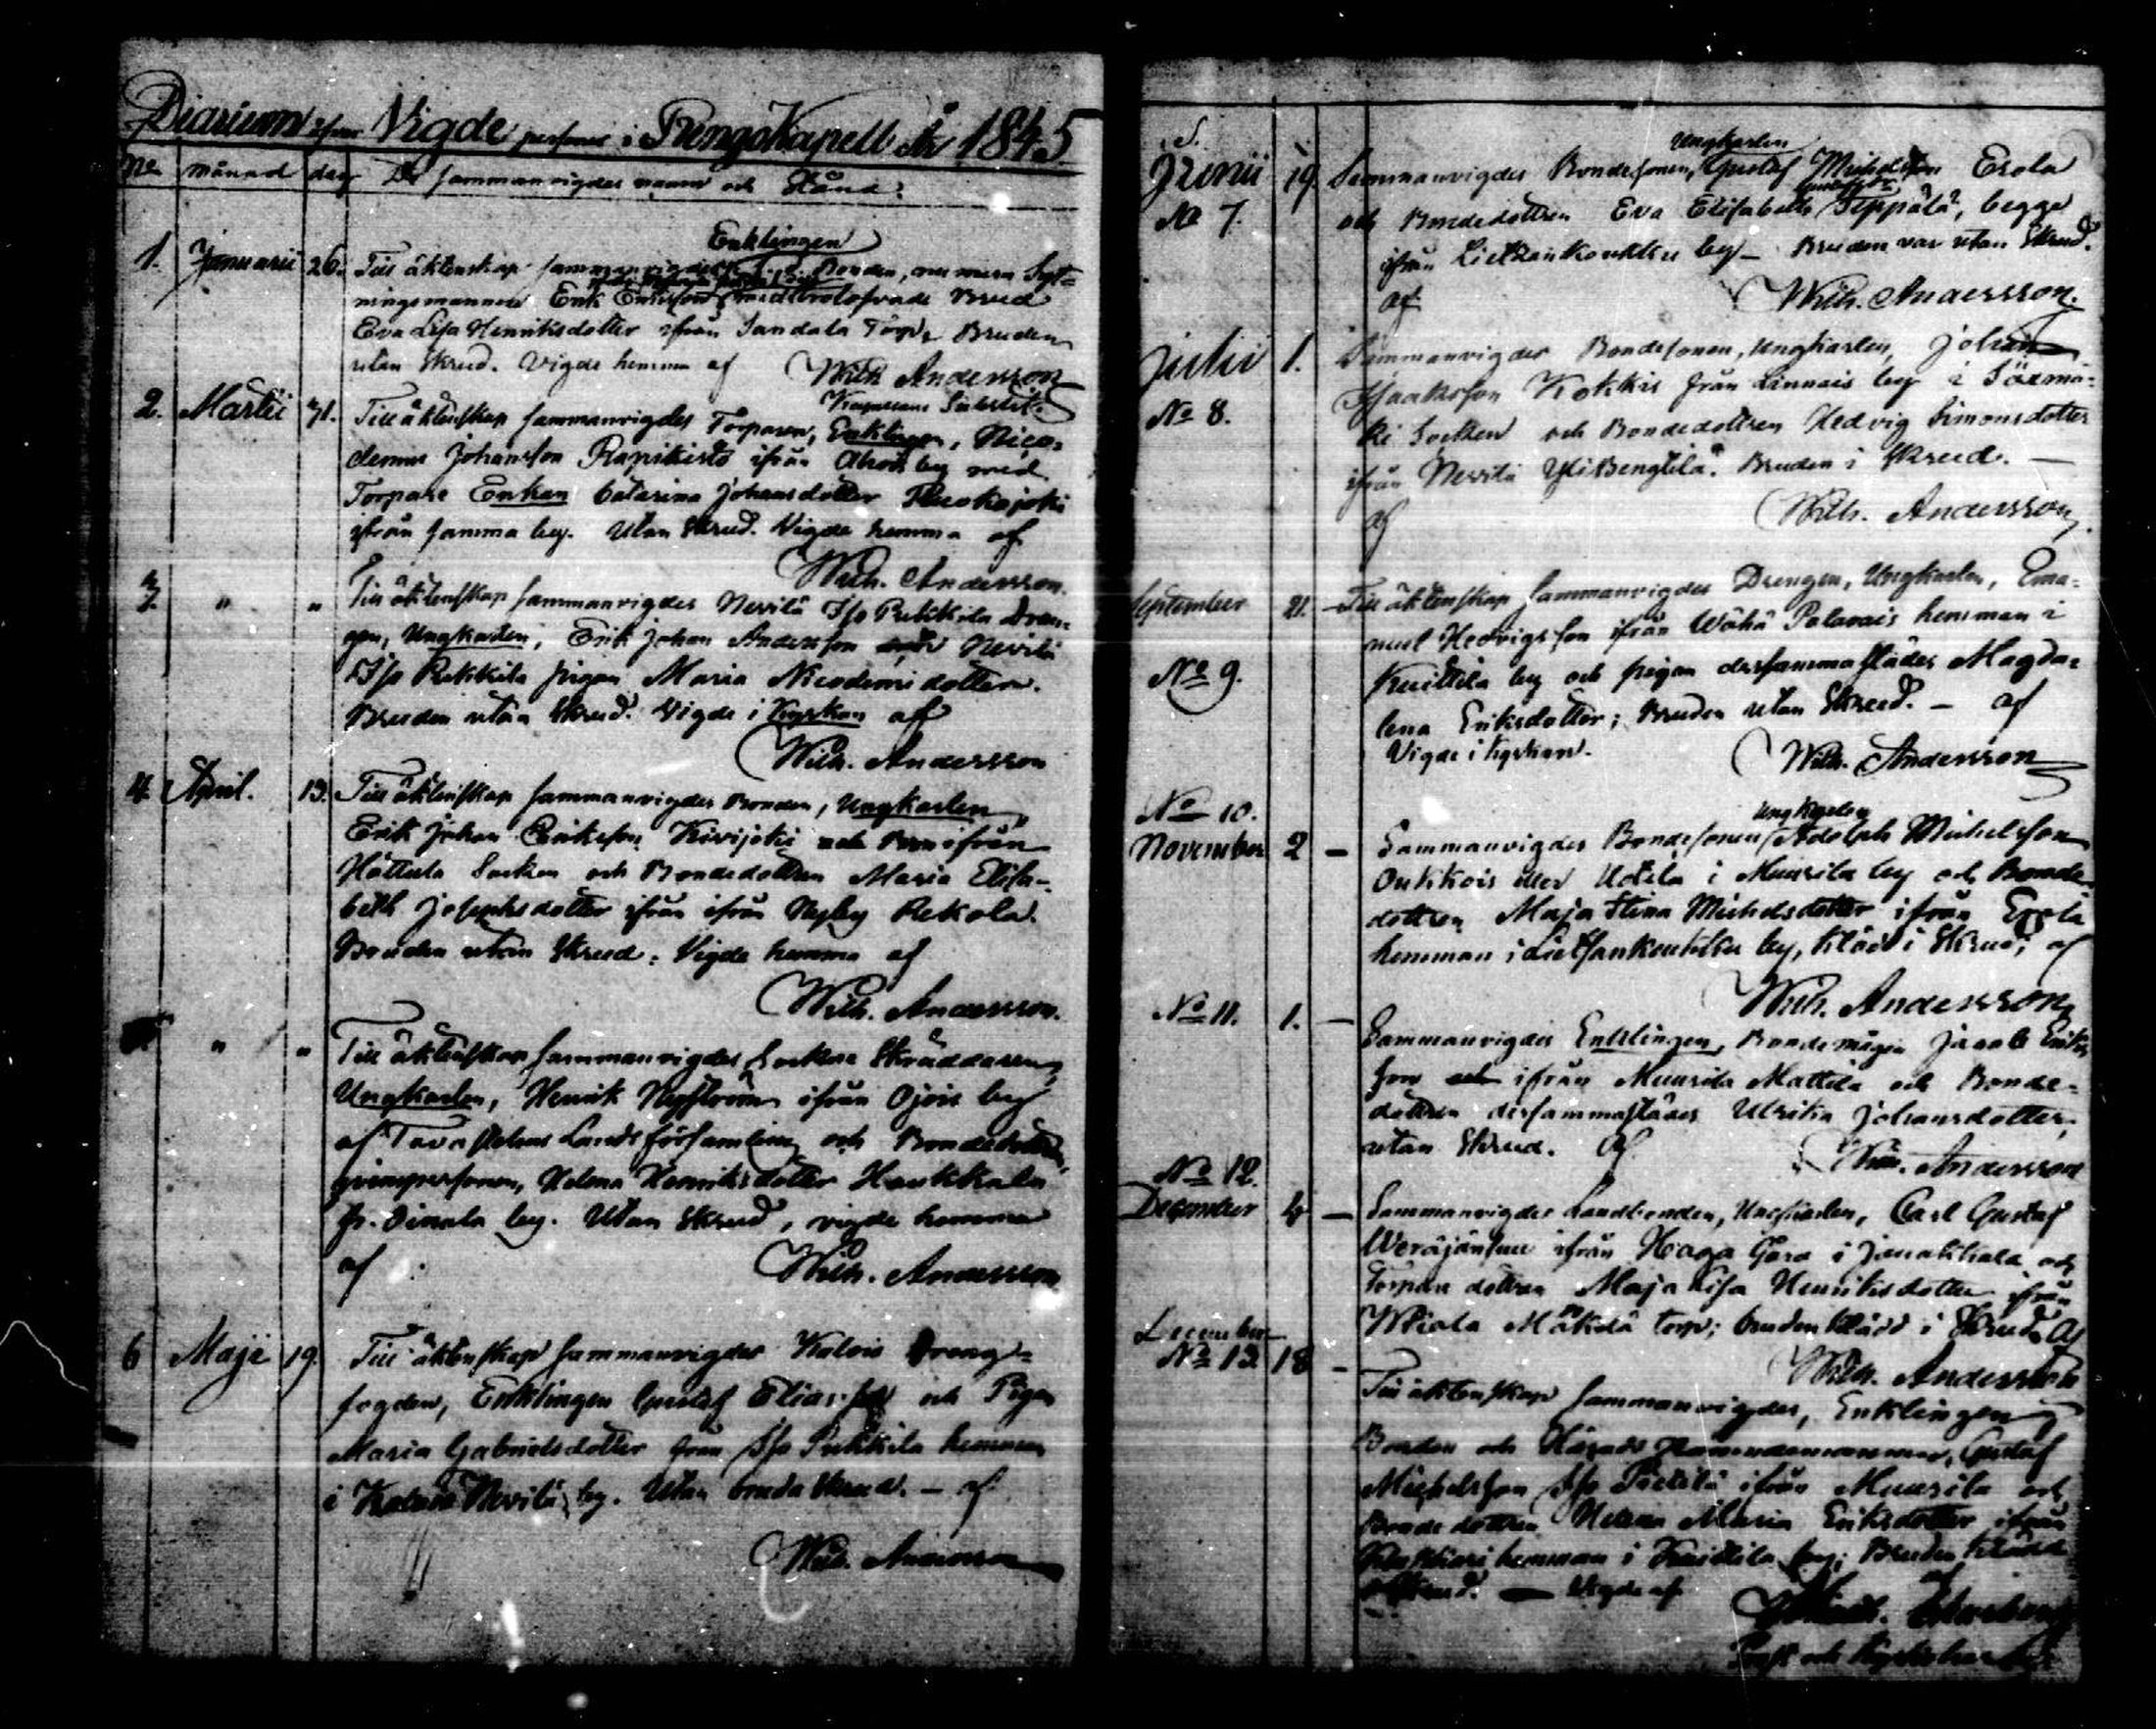 Diarium öfver Vigde personer i Rengo Kapell År 1845
No månad dag De sammanvigdes namn och Stånd.
Enklingen
1. Januarii 26. Till äktenskap sammanvigdes Bonden, numera Syt=
ningsmannen Erik Eriksson med trolofvade Brud
Eva Lisa Henriksdotter ifrån Sandala Torp, Bruden
utan Skrud. Vigde hemma af Wilh. Andersson
2. Martii 31. Till äktenskap sammanvigdes Torparen, Enklingen, Nico=
demus Johansson Rapikisto ifrån Ahois by med
Torpare Enkan Catarina Johansdotter
ifrån samma by. Utan Skrud. Vigde hemma af
Wilh. Andersson.
3. " " Till äktenskap sammanvigdes Nevilä Iso Pukkila Drän=
gen, Ungkarlen, Erik Johan Andersson Nevilä
Iso Pukkila pigan Maria Nicodemidotter.
Bruden utan Skrud. Vigde i Kyrkan af
Wilh. Andersson
4. April. 13. Till äktenskap sammanvigdes Bonden, Ungkarlen
Erik Johan Eriksson Kivijoki ifrån
Hattula Socken och Bondedottren Maria Elisa=
beth Josephsdotter ifrån ifrån Nyby Rekola.
Bruden utan Skrud. Vigde hemma af
Wilh. Andersson.
" " Till äktenskap sammanvigdes Sockne Skräddaren,
Ungkarlen, Henrik Nyström ifrån Ojois by
af Tavastehus Lands församling och Bondedottren,
qvinspersonen, Helena Henriksdotter Haukkala
fr. Oinala by. Utan Skrud, vigde hemma
af Wilh. Andersson
6 Maji 19. Till äktenskap sammanvigdes Kalois Dreng=
fogden, Enklingen Gustaf Eliasson och Pigan
Maria Gabrielsdotter från Iso Pukkila hemman
i Nevilä by. Utan bruda Skrud. – af
Wilh. Andersson
Ungkarlen
Junii 19. Sammanvigdes Bondesonen, Gustaf Michelsson Erola
No 7. och Bondedottren Eva Elisabeth Seppälä, begge
ifrån Lietzankoukku by – Bruden var utan Skrud.
af Wilh. Andersson.
Julii 1. Sammanvigdes Bondesonen, Ungkarlen, Johan
Isaaksson Kokkis från Linnais by i Säxmä=
No 8. ki Socken och Bondedottren Hedvig Simonsdotter
ifrån Nevilä Yli Bengtilä. Bruden i Skrud. –
af Wilh. Andersson.
September 21. – Till äktenskap sammanvigdes Drengen, Ungkarlen, Ema=
nuel Hedvigsson ifrån Wähä Palavais hemman i
No 9. Kuittila by och pigan dersammastädes Magda=
lena Eriksdotter; Bruden utan Skrud. – af
Vigde i kyrkan. Wilh. Andersson
No 10. Ungkarlen
November 2 – Sammanvigdes Bondesonen Adolph Michelsson
Onkkois eller Uotila i Muurila by och Bonde=
dottren Maja Stina Michelsdotter ifrån Erola
hemman i Lietsankoukku by, klädd i Skrud; af
Wilh. Andersson
No 11. 1. – Sammanvigdes Enklingen, Bondemågen Jacob Eriks
son ifrån Muurila Mattila och Bonde=
dottren dersammastädes Ulrika Johansdotter,
utan Skrud. Af Wilh. Andersson
No 12.
December 4 – Sammanvigdes Landbonden, Ungkarlen, Carl Gustaf
ifrån Haga Gård i Janakkala och
Torpare dottren Maja Lisa Henriksdotter ifrån
Mäkelä torp; bruden klädd i Skrud. Af
Wilh. Andersson
December
No 13. 18 – Till äktenskap sammanvigdes, Enklingen
Bonden och Härads Gustaf
Michelsson Iso ifrån Muurila och
Bonde dottren Helena Maria Eriksdotter ifrån
hemman i Kuittila by; Bruden klädd
i Skrud. – Vigde af